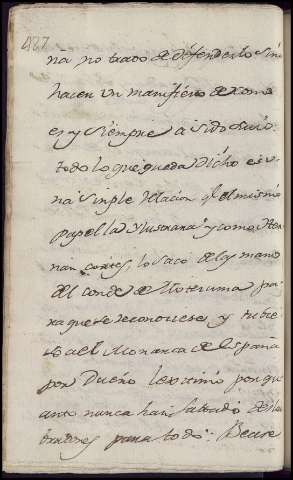 427
na no trato de defenderlo sino
hacer un manifiesto de como
es y siempre a sido suio:
todo lo que queda dicho es u
na simple relacion q.e el mismo
papel la Ylustrará y como Her
nan cortes, lo sacó de las manos
del conde de Moctezuma pa
ra que se reconociese y tubie
se al Monarca de España
por Dueño lexitimo por qu
ante nunca han faltado
bradores para todo: